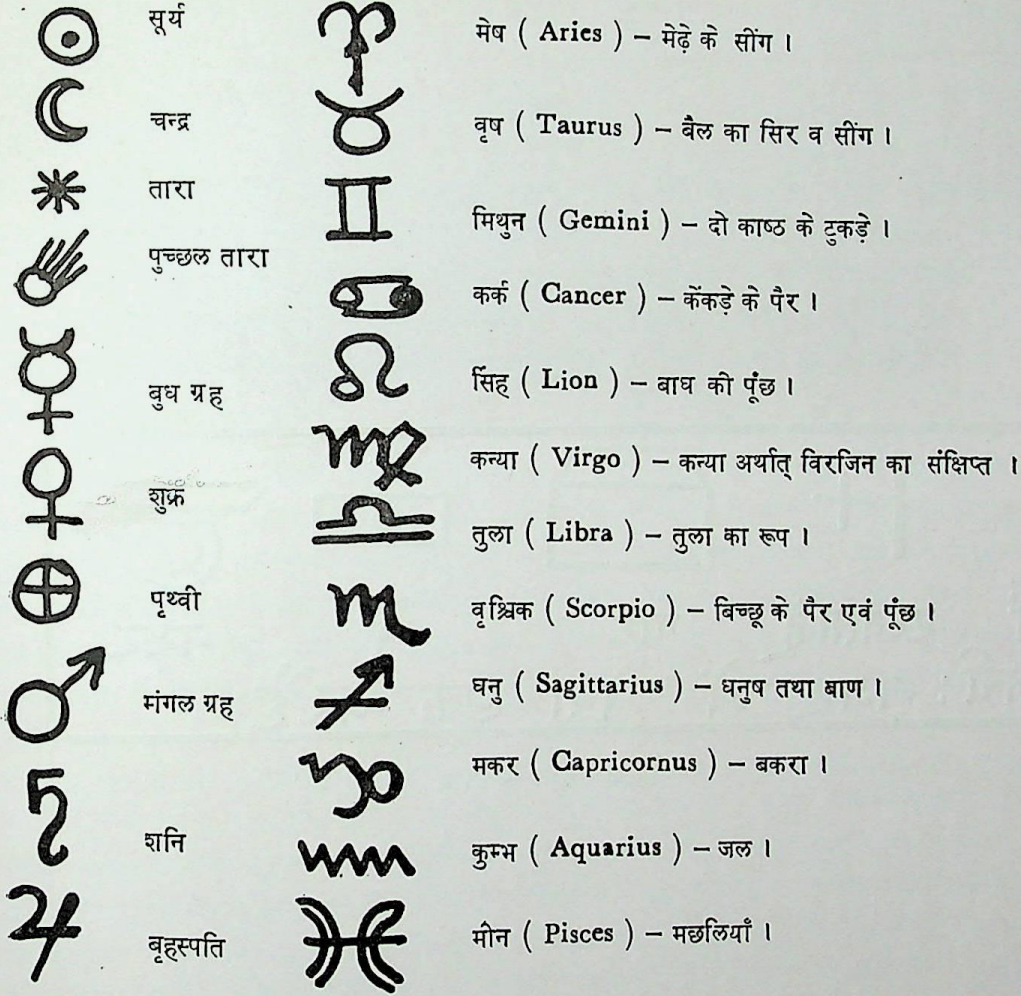 सूर्य
चन्द्र
तारा
पुच्छल तारा
बुध ग्रह
शुक्र
पृथ्वी
मंगल ग्रह
शनि
बृहस्पति
मेष ( Aries ) – मेढ़े के सींग ।
वृष ( Taurus ) – बैल का सिर व सींग ।
मिथुन ( Gemini ) – दो काष्ठ के टुकड़े ।
कर्क ( Cancer ) – केंकड़े के पैर ।
सिंह ( Lion ) – बाघ की पूंछ ।
कन्या ( Virgo ) – कन्या अर्थात् विरजिन का संक्षिप्त ।
तुला ( Libra ) – तुला का रूप ।
वृश्चिक ( Scorpio ) – बिच्छू के पैर एवं पूंछ ।
धनु ( Sagittarius ) – धनुष तथा बाण ।
मकर ( Capricornus ) – बकरा ।
कुम्भ ( Aquarius ) – जल ।
मीन ( Pisces ) – मछलियाँ ।